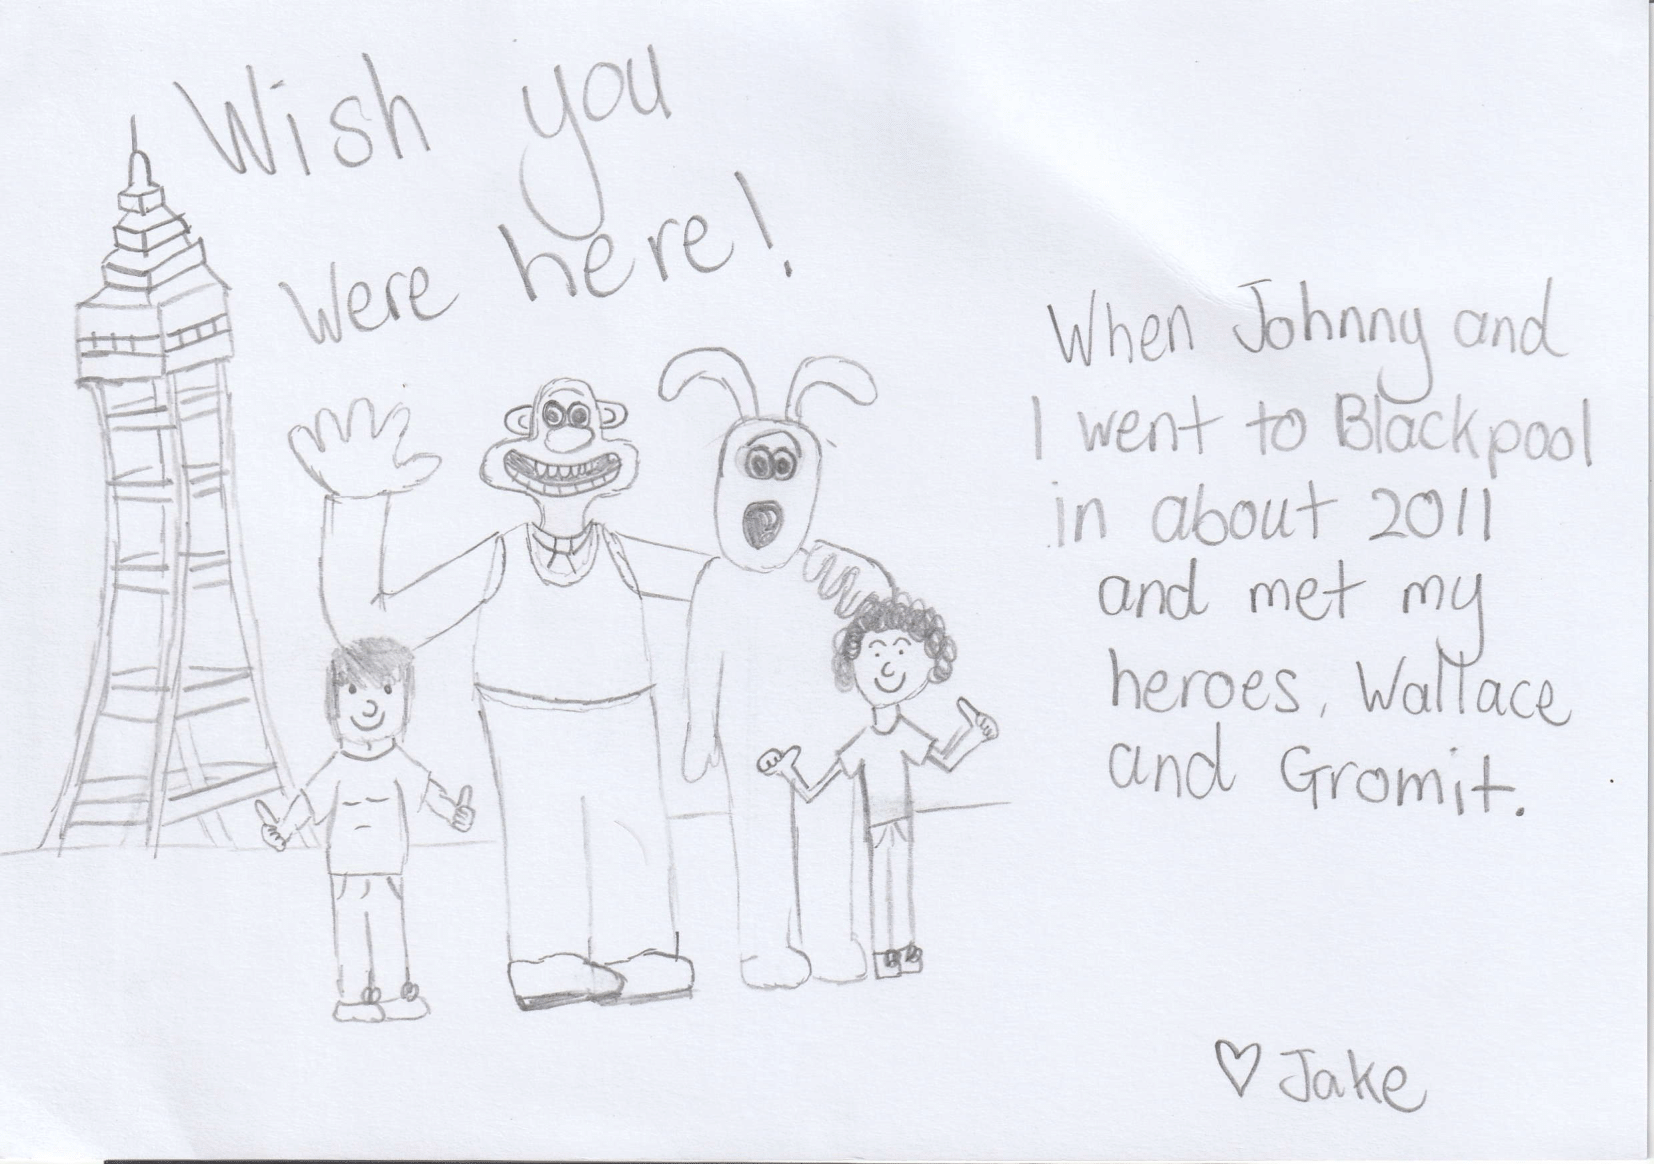 Wish you
were here!
When Johnny and
I went to Blackpool
in about 2011
and met my
heroes, Wallace
and Gromit.
♡ Jake